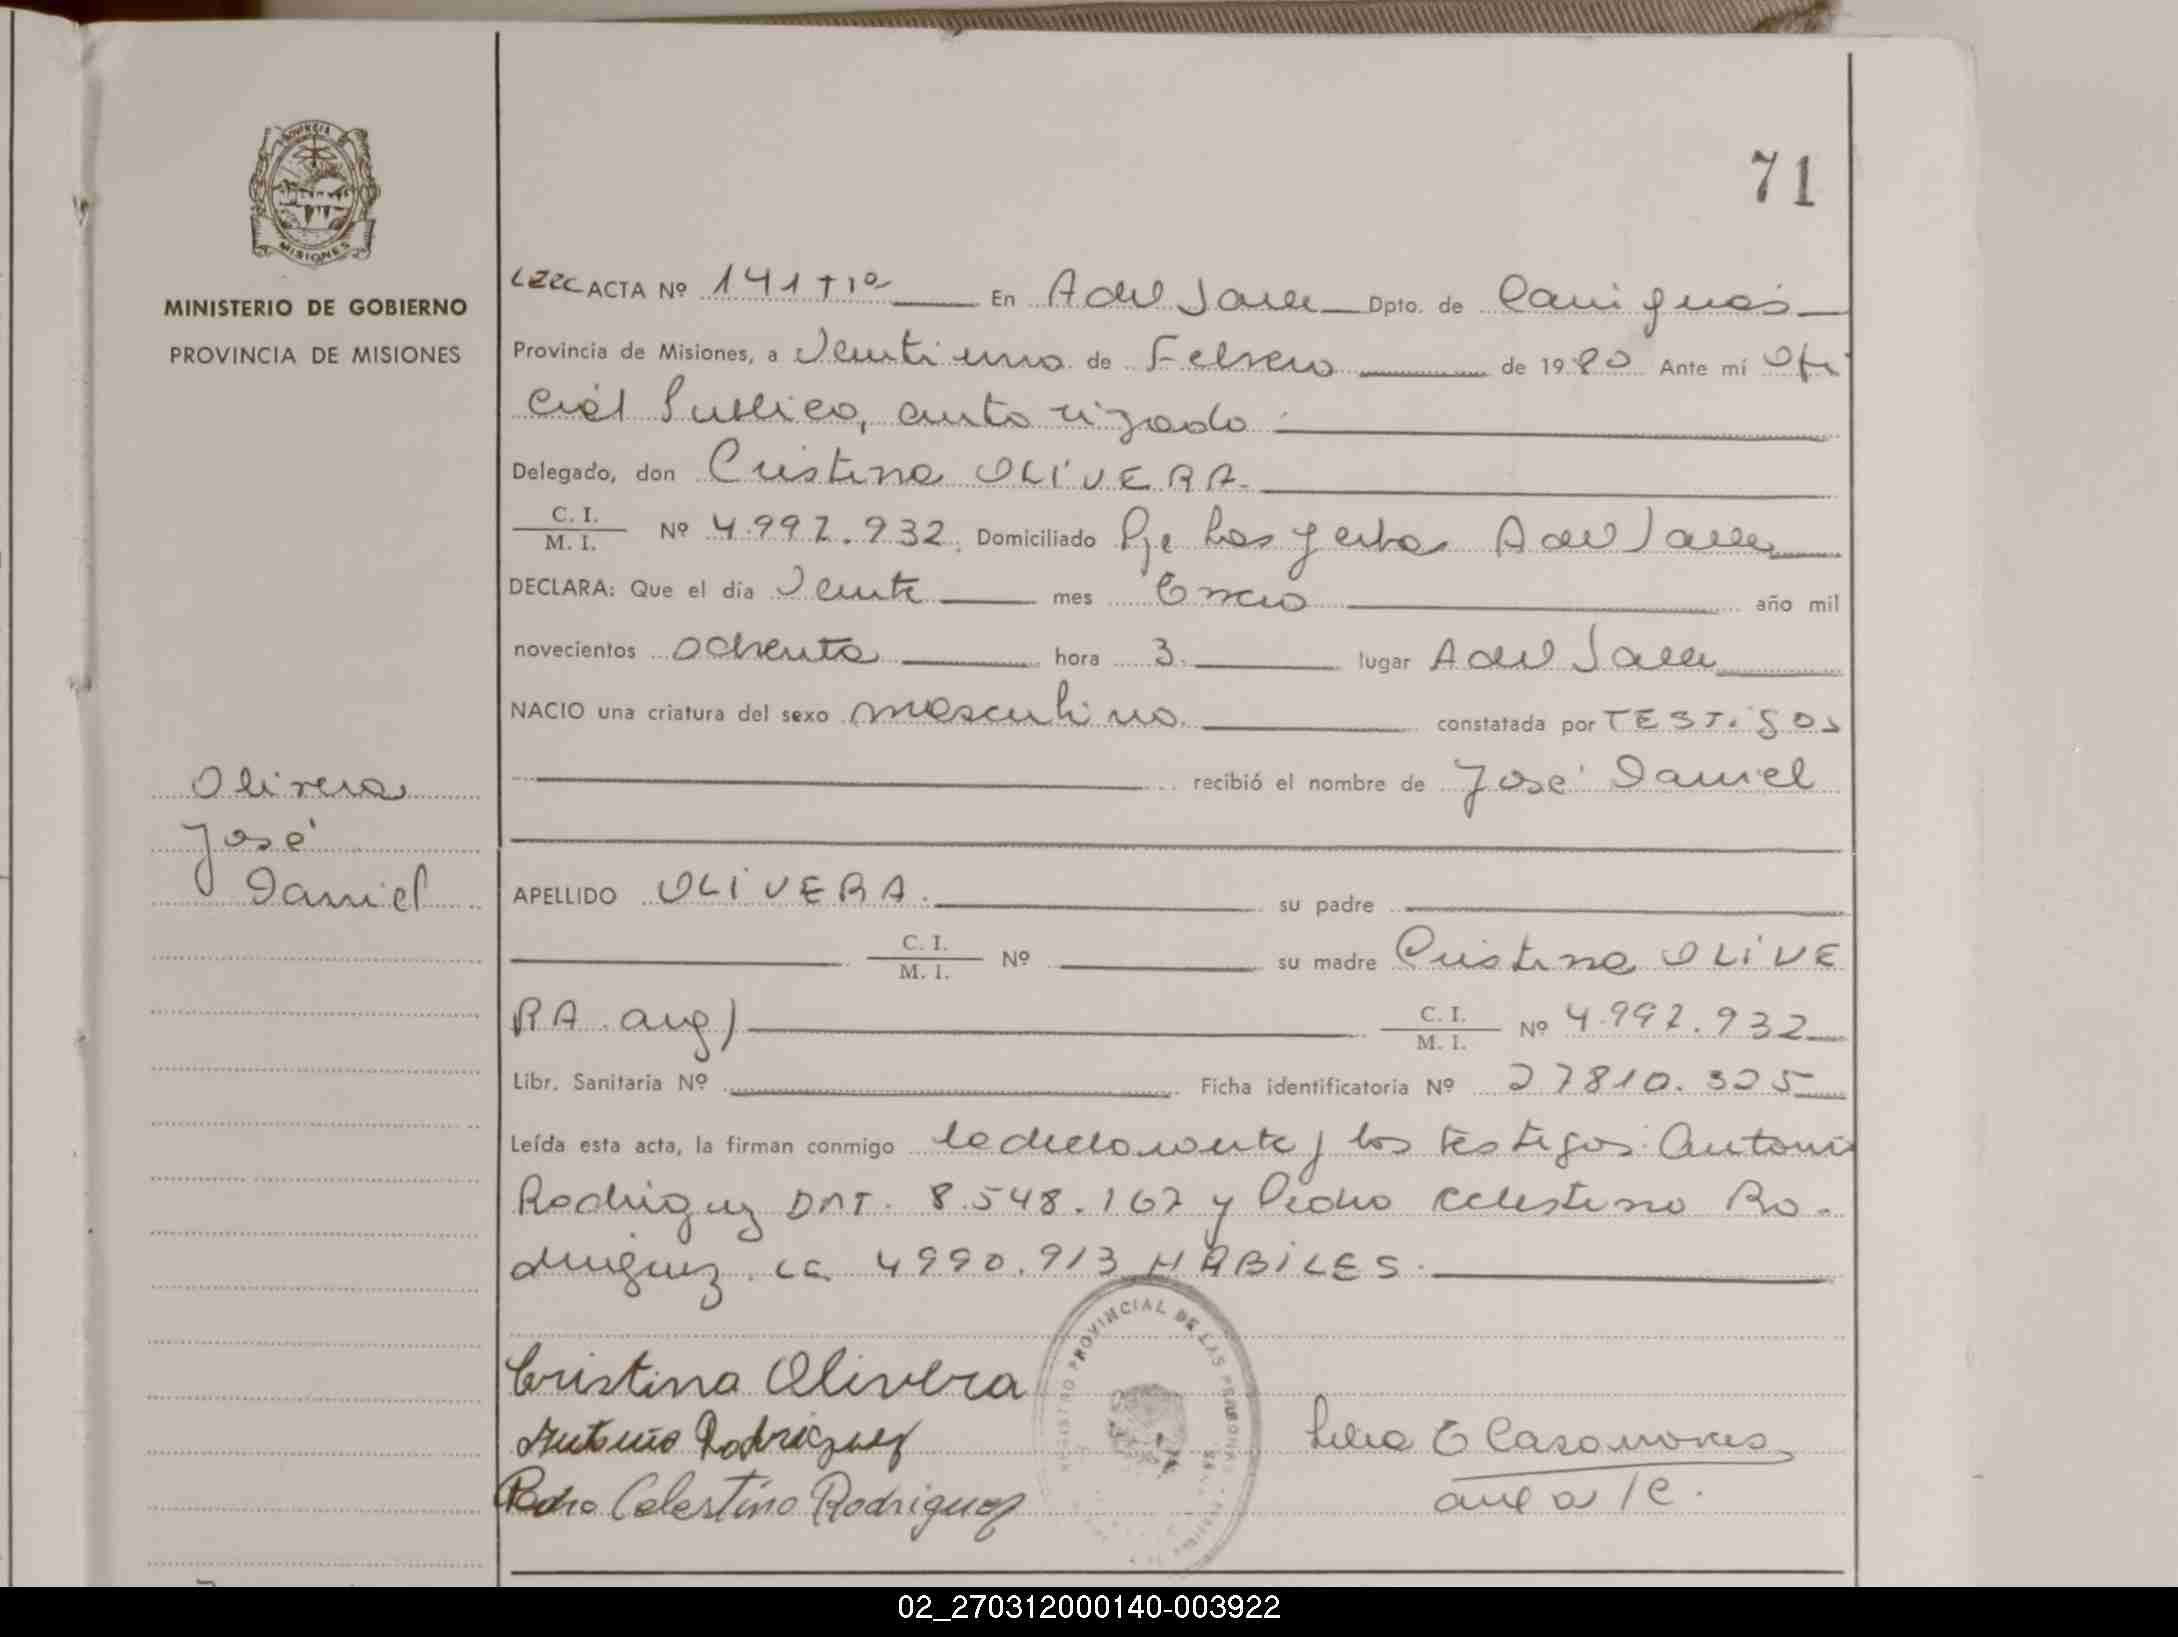 71
PROVINCIA
MISIONES
MINISTERIO DE GOBIERNO
PROVINCIA DE MISIONES
ACTA Nº 141 T 1º En A del Valle Dpto. de Cainguás
Provincia de Misiones, a Veintiuno de Febrero de 1980 Ante mí Ofi
cial Publico, autorizado
Delegado, don Cristina OLIVERA.
C. I.
M. I. Nº 4.992.932, Domiciliado Pje Las Yerbas A del Valle
DECLARA: Que el día Veinte mes Enero año mil
novecientos ochenta hora 3. lugar A del Valle
NACIO una criatura del sexo masculino constatada por TESTIGOS
recibió el nombre de José Daniel
Olivera
José
Daniel
APELLIDO OLIVERA. su padre
C. I.
M. I. Nº su madre Cristina OLIVE
RA arg) C. I.
M. I. Nº 4.992.932
Libr. Sanitaria Nº Ficha identificatoria Nº 27810.325
Leída esta acta, la firman conmigo la declarante y los testigos: Antonio
Rodriguez DNI. 8.548.167 y Pedro Celestino Ro-
driguez. 4990.913 HABILES.
REGISTRO PROVINCIAL DE LAS PERSONAS
Cristina Olivera
Antonio Rodriguez
Pedro Celestino Rodriguez
E Casanovas
02_270312000140-003922